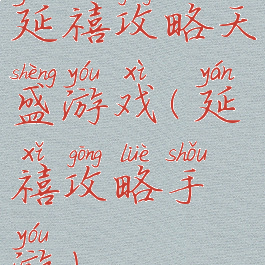 延禧攻略天
shèng yóu xì yán
盛游戏(延
xǐ gōng lüè shǒu
禧攻略手
yóu
游)